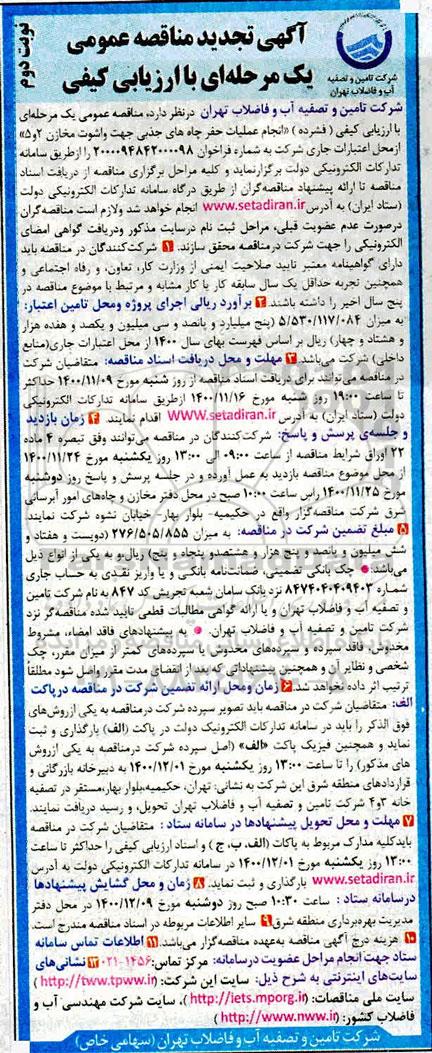 نوبت دوم
آگهی تجدید مناقصه عمومی
یک مرحله‌ای با ارزیابی کیفی
شرکت تامین و تصفیه
آب و فاضلاب تهران
شرکت تامین و تصفیه آب و فاضلاب تهران درنظر دارد، مناقصه عمومی یک مرحله‌ای
با ارزیابی کیفی ( فشرده ) «انجام عملیات حفر چاه های جذبی جهت واشوت مخازن ۲و۵»
ازمحل اعتبارات جاری شرکت به شماره فراخوان ۲۰۰۰۰۹۴۸۴۲۰۰۰۰۹۸ را ازطریق سامانه
تدارکات الکترونیکی دولت برگزارنماید و کلیه مراحل برگزاری مناقصه از دریافت اسناد
مناقصه تا ارائه پیشنهاد مناقصه‌گران از طریق درگاه سامانه تدارکات الکترونیکی دولت
(ستاد ایران) به آدرس www.setadiran.ir انجام خواهد شد ولازم است مناقصه‌گران
درصورت عدم عضویت قبلی، مراحل ثبت نام درسایت مذکور ودریافت گواهی امضای
الکترونیکی را جهت شرکت درمناقصه محقق سازند. ۱ شرکت‌کنندگان در مناقصه باید
دارای گواهینامه معتبر تایید صلاحیت ایمنی از وزارت کار، تعاون، و رفاه اجتماعی و
همچنین تجربه حداقل یک سال سابقه کار یا کار مشابه و مرتبط با موضوع مناقصه در
پنج سال اخیر را داشته باشند ۲ برآورد ریالی اجرای پروژه ومحل تامین اعتبار:
به میزان ۵/۵۳۰/۱۱۷/۰۸۴ (پنج میلیارد و پانصد و سی میلیون و یکصد و هفده هزار
و هشتاد و چهار) ریال بر اساس فهرست بهای سال ۱۴۰۰ از محل اعتبارات جاری(منابع
داخلی) شرکت می‌باشد. ۳ مهلت و محل دریافت اسناد مناقصه: متقاضیان شرکت
در مناقصه می‌توانند برای دریافت اسناد مناقصه از روز شنبه مورخ ۱۴۰۰/۱۱/۰۹ حداکثر
تا ساعت ۱۹:۰۰ روز شنبه مورخ ۱۴۰۰/۱۱/۱۶ ازطریق سامانه تدارکات الکترونیکی
دولت (ستاد ایران) به آدرس WWW.setadiran.ir اقدام نمایند. ۴ زمان بازدید
و جلسه‌ی پرسش و پاسخ: شرکت‌کنندگان در مناقصه می‌توانند وفق تبصره ۴ ماده
۲۲ اوراق شرایط مناقصه از ساعت ۰۹:۰۰ الی ۱۳:۰۰ روز یکشنبه مورخ ۱۴۰۰/۱۱/۲۴
از محل موضوع مناقصه بازدید به عمل آورده و در جلسه پرسش و پاسخ روز دوشنبه
مورخ ۱۴۰۰/۱۱/۲۵ راس ساعت ۱۰:۰۰ صبح در محل دفتر مخازن و چاه‌های امور آبرسانی
شرق شرکت مناقصه‌گزار واقع در حکیمیه- بلوار بهار- خیابان تشود شرکت نمایند.
۵ مبلغ تضمین شرکت در مناقصه: به میزان ۲۷۶/۵۰۵/۸۵۵ (دویست و هفتاد و
شش میلیون و پانصد و پنج هزار و هشتصدو پنجاه و پنج) ریال،و به یکی از انواع ذیل
می‌باشد: ● چک بانکی تضمینی، ضمانت‌نامه بانکی و یا واریز نقدی به حساب جاری
شماره ۸۴۷۴۰۴۰۴۰۹۴۰۳ نزد بانک سامان شعبه تجریش کد ۸۴۷ به نام شرکت تامین
و تصفیه آب و فاضلاب تهران و یا ارائه گواهی مطالبات قطعی تایید شده مناقصه‌گر نزد
شرکت تامین و تصفیه آب و فاضلاب تهران. ● به پیشنهادهای فاقد امضاء، مشروط
مخدوش، فاقد سپرده و سپرده‌های مخدوش یا سپرده‌های کمتر از میزان مقرر، چک
شخصی و نظایر آن و همچنین پیشنهاداتی که بعد از انقضای مدت مقرر واصل شود مطلقا
ترتیب اثر داده نخواهد شد. ۶ زمان ومحل ارائه تضمین شرکت در مناقصه درپاکت
الف: متقاضیان شرکت در مناقصه باید تصویر سپرده شرکت درمناقصه به یکی ازروش‌های
فوق الذکر را باید در سامانه تدارکات الکترونیک دولت در پاکت (الف) بارگذاری و ثبت
نماید و همچنین فیزیک پاکت «الف» (اصل سپرده شرکت درمناقصه به یکی ازروش
های مذکور) را تا ساعت ۱۳:۰۰ روز یکشنبه مورخ ۱۴۰۰/۱۲/۰۱ به دبیرخانه بازرگانی و
قراردادهای منطقه شرق این شرکت به نشانی: تهران، حکیمیه،بلوار بهار،مستقر در تصفیه
خانه ۳و۴ شرکت تامین و تصفیه آب و فاضلاب تهران تحویل، و رسید دریافت نمایند.
۷ مهلت و محل تحویل پیشنهادها در سامانه ستاد : متقاضیان شرکت در مناقصه
بایدکلیه مدارک مربوط به پاکات (الف، ب، ج ) و اسناد ارزیابی کیفی را حداکثر تا ساعت
۱۳:۰۰ روز یکشنبه مورخ ۱۴۰۰/۱۲/۰۱ در سامانه تدارکات الکترونیکی دولت به آدرس
www.setadiran.ir بارگذاری و ثبت نماید. ۸ زمان و محل گشایش پیشنهادها
درسامانه ستاد : ساعت ۱۰:۳۰ صبح روز دوشنبه مورخ ۱۴۰۰/۱۲/۰۹ در محل دفتر
مدیریت بهره‌برداری منطقه شرق ۹ سایر اطلاعات مربوطه در اسناد مناقصه مندرج است.
۱۰ هزینه درج آگهی مناقصه به‌عهده مناقصه‌گزار می‌باشد. ۱۱ اطلاعات تماس سامانه
ستاد جهت انجام مراحل عضویت درسامانه: مرکز تماس: ۱۴۵۶-۰۲۱ ۱۲ نشانی‌های
سایت‌های اینترنتی به شرح ذیل: سایت این شرکت: (http://tww.tpww.ir)
سایت ملی مناقصات: (http://iets.mporg.ir)، سایت شرکت مهندسی آب و
فاضلاب کشور: (http://www.nww.ir)
شرکت تامین و تصفیه آب و فاضلاب تهران (سهامی خاص)